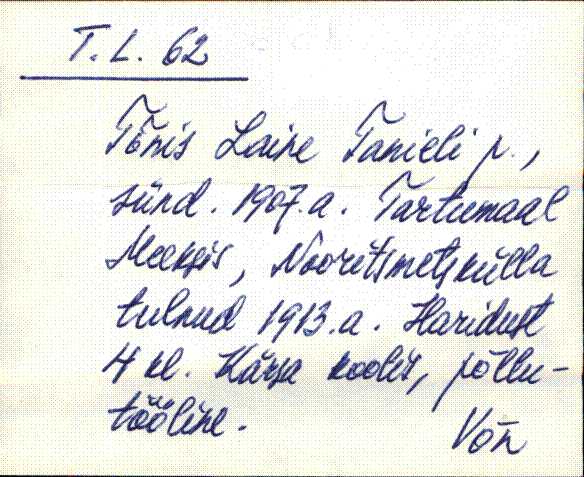 T. L. 62
Tõnis Laine Tanieli p.,
sünd. 1907. a. Tartumaal
Meeksis, Nooritsmetskülla
tulnud 1913. a. Haridust
4 kl. Kärsa koolis, põllu-
tööline. Võn